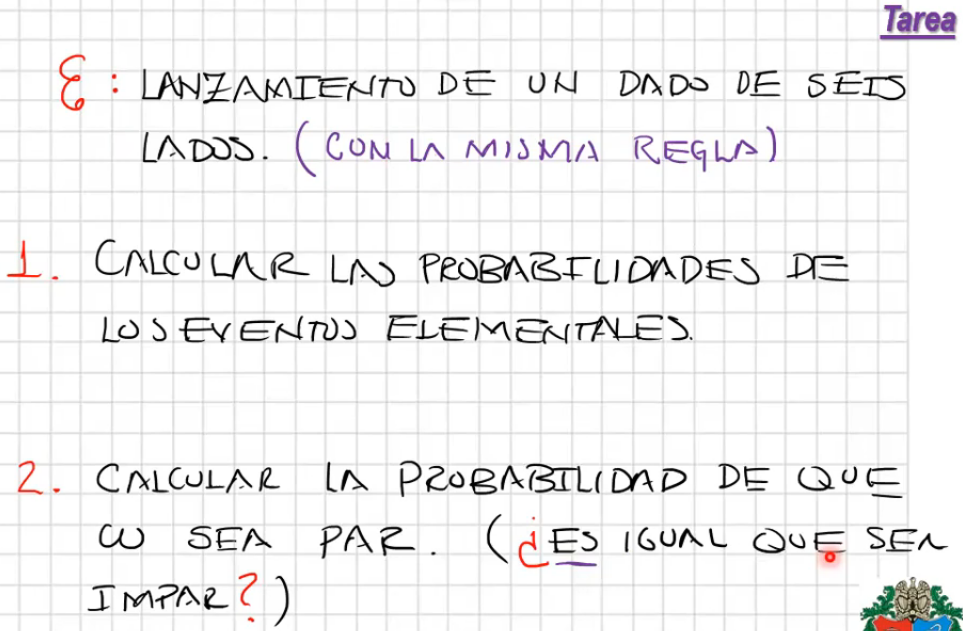 Tarea
ε: LANZAMIENTO DE UN DADO DE SEIS
LADOS. (CON LA MISMA REGLA)
1. CALCULAR LAS PROBABILIDADES DE
LOS EVENTOS ELEMENTALES.
2. CALCULAR LA PROBABILIDAD DE QUE
ω SEA PAR. (¿ES IGUAL QUE SEA
IMPAR?)